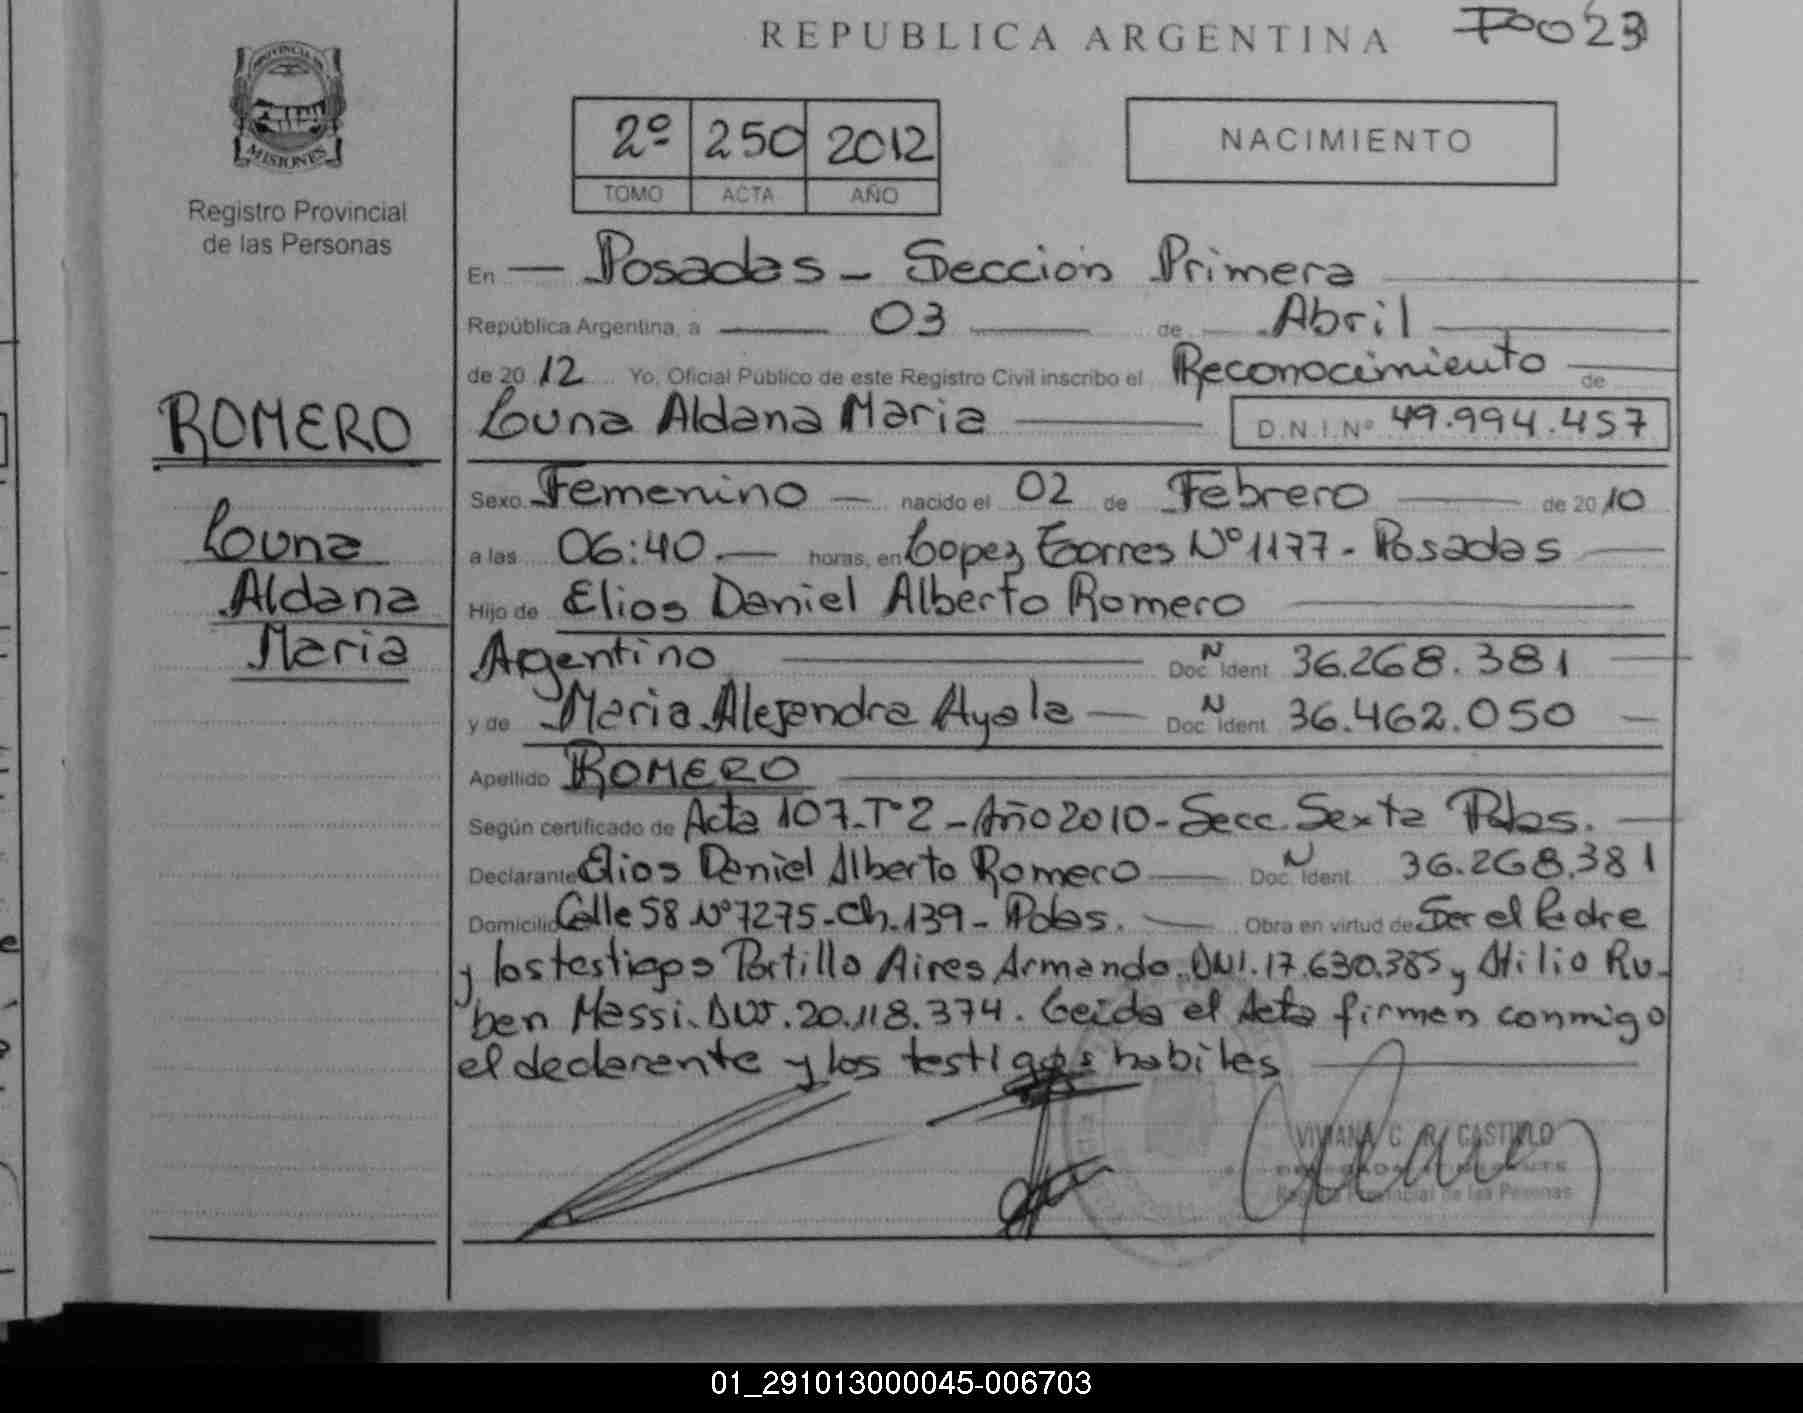 REPUBLICA ARGENTINA
PROVINCIA DE
MISIONES
Registro Provincial
de las Personas
2º 250 2012
TOMO ACTA AÑO
NACIMIENTO
En Posadas - Seccion Primera
República Argentina, a 03 de Abril
de 2012 Yo, Oficial Público de este Registro Civil inscribo el Reconocimiento de
Louna Aldana Maria D.N.I.Nº 49.994.457
ROMERO
Louna
Aldana
Maria
Sexo Femenino nacido el 02 de Febrero de 2010
a las 06:40 horas, en Lopez Torres Nº 1177 - Posadas
Hijo de Elios Daniel Alberto Romero
Argentino Doc. Ident. N 36.268.381
y de Maria Alejandra Ayala Doc. Ident. N 36.462.050
Apellido ROMERO
Según certificado de Acta 107 - Tº 2 - Año 2010 - Secc. Sexta Pdas.
Declarante Elios Daniel Alberto Romero Doc. Ident. N 36.268.381
Domicilio Calle 58 Nº 7275 - Ch. 139 - Pdas. Obra en virtud de Ser el Padre
y los testigos Portillo Aires Armando. DNI. 17.630.385 y Atilio Ru-
ben Massi. DNI. 20.118.374. Leida el Acta firman conmigo
el declarante y los testigos habiles
VIVIANA C. R. CASTILLO
Registro Provincial de las Personas
01_291013000045-006703